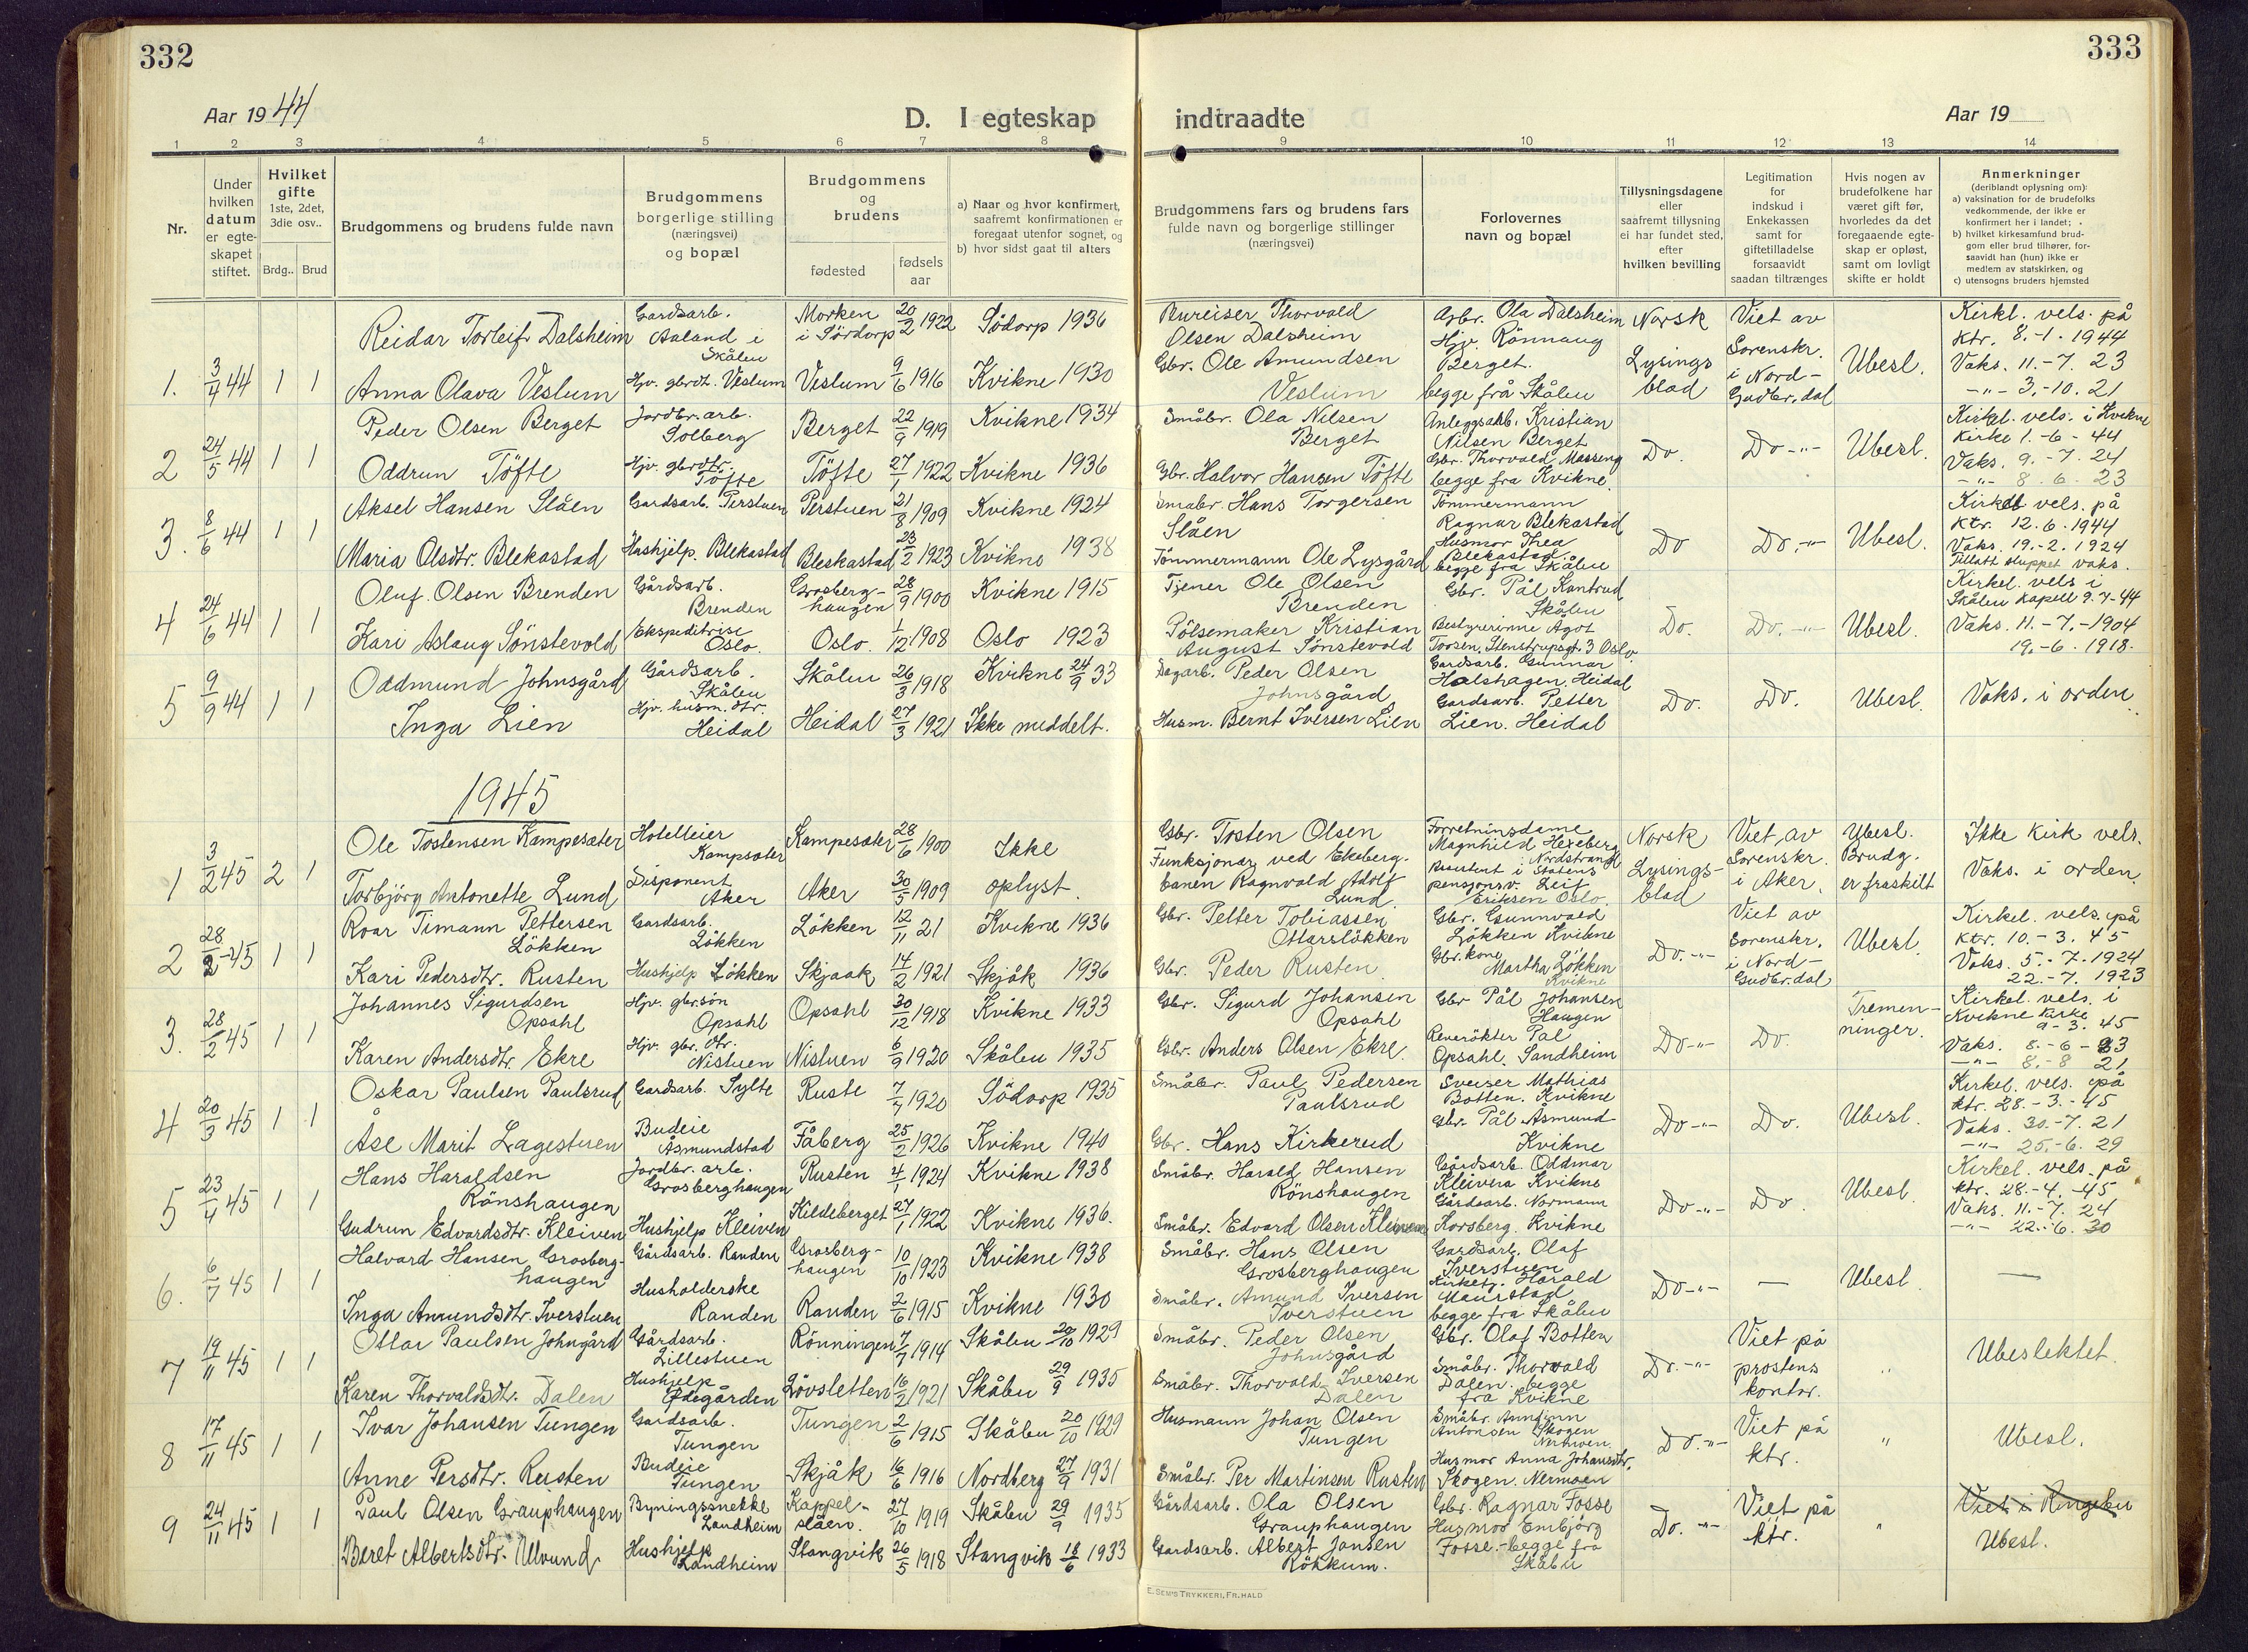 332
333
Aar 1944
D. I egteskap
indtraadte
Aar 19
1 2 3 4 5 6 7 8 9 10 11 12 13 14
Nr.
Under hvilken datum er egteskapet stiftet.
Hvilket gifte 1ste, 2det, 3die osv..
Brdg.. Brud
Brudgommens og brudens fulde navn
Brudgommens borgerlige stilling (næringsvei) og bopæl
Brudgommens og brudens
fødested
fødsels aar
a) Naar og hvor konfirmert, saafremt konfirmationen er foregaat utenfor sognet, og
b) hvor sidst gaat til alters
Brudgommens fars og brudens fars fulde navn og borgerlige stillinger (næringsvei)
Forlovernes navn og bopæl
Tillysningsdagene eller saafremt tillysning ei har fundet sted, efter hvilken bevilling
Legitimation for indskud i Enkekassen samt for giftetilladelse forsaavidt saadan tiltrænges
Hvis nogen av brudefolkene har været gift før, hvorledes da det foregaaende egteskap er opløst, samt om lovligt skifte er holdt
Anmerkninger
(deriblandt oplysning om):
a) vaksination for de brudefolks vedkommende, der ikke er konfirmert her i landet;
b) hvilket kirkesamfund brudgom eller brud tilhører, forsaavidt han (hun) ikke er medlem av statskirken, og
c) utensogns bruders hjemsted
1. 3/4 44 1 1
Reidar Torleif Dalsheim
Gardsarb. Aaland i Skålen
Morken i Sördorp 20/2 1922
Södorp 1936
Bureiser Thorvald Olsen Dalsheim
Anna Olava Veslum
Hjv. gbrdt. Veslum
Veslum 9/6 1916
Kvikne 1930
Gbr. Ole Amundsen Veslum
Gbr. Ola Dalsheim
Hjv. Rönnaug Berget.
begge frå Skålen
Norsk Lysings blad
Viet av Sorenskr. i Nord-Gudbr.dal
Ubesl.
Kirkl. vels. på
ktr. 8.-1. 1944
Vaks. 11.-7. 23
-"- 3.-10. 21
2 24/5 44 1 1
Peder Olsen Berget
Jordbr. arb. Solberg
Berget 22/9 1919
Kvikne 1934
Småbr. Ola Nilsen Berget
Oddrun Töfte
Hjv. gbrdtr. Töfte
Töfte 27/1 1922
Kvikne 1936
Gbr. Halvor Hansen Töfte
Anleggsarb. Kristian Nilsen Berget
Gbr. Thorvald Masseng
begge fra Kvikne.
Do. Do-"- Ubesl.
Kirkel. vels. i Kvikne
Kirke 1.-6-44
Vaks. 9.-7. 24
-"- 8. 6. 23
3. 8/6 44 1 1
Aksel Hansen Slåen
Gardsarb. Perstuen
Perstuen 21/8 1909
Kvikne 1924
Småbr. Hans Torgersen Slåen
Maria Olsdtr. Blekastad
Hushjelp. Blekastad
Bleskastad 23/2 1923
Kvikne 1938
Tömmermann Ole Lysgård
Tömmermann Ragnar Blekastad
Husmor Thea Blekastad
begge fra Skålen
Do Do.-"- Ubesl.
Kirkel vels. på
ktr. 12.6.1944
Vaks. 19.-2. 1924
Tillatt sluppet vaks.
4 24/6 44 1 1
Oluf Olsen Brenden
Gårdsarb. Brenden
Grosberghaugen 28/9 1900
Kvikne 1915
Tjener Ole Olsen Brenden
Kari Aslaug Sönstevold
Ekspeditrise Oslo.
Oslo. 1/12 1908
Oslo 1923
Pölsemaker Kristian August Sönstevold
Gbr. Pål Kantrud Skålen
Bestyrerinne Agot Toosen, Stenstrupsgt. 3 Oslo.
Do. Do.-"- Ubesl.
Kirkel. vels i
Skålen kapell 9.7-44
Vaks. 11.-7.-1904
19.-6. 1918.
5 9/9 44 1 1
Oddmund Johnsgård
Gårdsarb. Skålen
Skålen 26/3 1918
Kvikne 24/9 33
Dagarb. Peder Olsen Johnsgård
Inga Lien
Hjv. husm. dtr. Heidal
Heidal 27/3 1921
Ikke meddelt.
Husm. Bernt Iversen Lien
Gardsarb. Gunnar Halshagen, Heidal
Gardsarb. Petter Lien. Heidal
Do. Do. Ubesl.
Vaks. i orden
1945
1 3/2 45 2 1
Ole Tostensen Kampesæter
Hotelleier Kampsæter
Kampesæter 28/6 1900
Ikke oplyst.
Gbr. Tosten Olsen
Torbjörg Antonette Lund
Disponent Aker
Aker 30/5 1909
Funksjonær ved Ekebergbanen Ragnvald Adolf Lund
Forretningsdame Magnhild Hexeberg Nordstrand
Assistent i Statens pensjonsv. Leif Eriksen Oslo.
Norsk Lysings-blad
Viet av Sorenskr. i Aker.
Ubesl. Brudg. er fraskilt
Ikke kirk vels.
Vaks. i orden.
2 28/2-45 1 1
Roar Timann Pettersen Lökken
Gardsarb. Lökken
Lökken 12/11 21
Kvikne 1936
Gbr. Petter Tobiassen Ottarslökken
Kari Pedersdtr. Rusten
Hushjelp Lökken
Skjaak 14/2 1921
Skjåk 1936
Gbr. Peder Rusten.
Gbr. Gunnvald Lökken Kvikne
Gbr. kone Martha Lökken Kvikne
Do.-"-
Viet av Sorenskr. i Nord-Gudbr.dal
Ubesl.
Kirkel. vels. på
ktr. 10.-3. 45
Vaks. 5.-7. 1924
22.-7. 1923
3. 28/2 45 1 1
Johannes Sigurdsen Opsahl
Hjv. gbr.søn Opsahl
Opsahl 30/12 1918
Kvikne 1933
Gbr. Sigurd Johansen Opsahl
Karen Andersdtr. Ekre
Hjv. gbr. dtr. Nistuen
Nistuen 6/9 1920
Skåbu 1935
Gbr. Anders Olsen Ekre.
Gbr Pål Johansen Haugen
Reverökter Pål Opsahl. Sandheim
Do-"- Do.
Tremenninger.
Kirkel. vels. i
Kvikne kirke
9-3. 45
Vaks. 8.-6-23
-"- 8.-8 21
4 20/3 45 1 1
Oskar Paulsen Paulsrud
Gardsarb. Sylte
Ruste 7/7 1920
Södorp 1935
Småbr. Paul Pedersen Paulsrud
Åse Marit Lagestuen
Budeie Åsmundstad
Fåberg 25/2 1926
Kvikne 1940
Gbr. Hans Kirkerud
Sveiser Mathias Botten. Kvikne
Gbr. Pål Åsmund Kvikne
Do-"- Do. Ubesl.
Kirkel. vels. på
ktr. 28.-3.-45
Vaks. 30.-7. 21
-"- 25.-6. 29
5 23/4 45 1 1
Hans Haraldsen Rönshaugen
Jordbr. arb. Grosberghaugen
Rusten 4/1 1924
Kvikne 1938
Småbr. Harald Hansen Rönshaugen
Gudrun Edvardsdtr. Kleiven
Hushjelp Kleiven
Kildeberget 27/1 1922
Kvikne 1936.
Småbr. Edvard Olsen Kleiven
Gårdsarb. Oddmar Kleiven Kvikne
Gårdsarb. Normann Korsberg. Kvikne
Do-"- Do. Ubesl.
Kirkel. vels. på
ktr. 28.-4. -45
Vaks. 11.-7. 24
-"- 22.-6. 30
6. 6/7 45 1 1
Halvard Hansen Grosberghaugen
Gårdsarb. Randen
Grosberghaugen 10/10 1923
Kvikne 1938
Småbr. Hans Olsen Grosberghaugen
Inga Amundsdtr. Iverstuen
Husholderske Randen
Randen 2/6 1915
Kvikne 1930
Småbr. Amund Iversen Iverstuen
Gardsarb. Olaf Iverstuen
Kirketj. Harald Maurstad
begge fra Skålen
Do-"- — Ubesl —
7 19/11 45 1 1
Ottar Paulsen Johngård
Gårdsarb. Lillestuen
Rönningen 7/7 1914
Skåbu 20/10 1929
Småbr. Peder Olsen Johnsgård
Karen Thorvaldsdtr. Dalen
Hushjelp Ødegården
Lövsletten 16/2 1921
Skåbu 29/9 1935
Småbr. Thorvald Iversen Dalen
Gbr. Olaf Botten
Småbr. Thorvald Dalen. begge fra Kvikne
Do.-"-
Viet på prostens kontor.
"
Ubeslektet.
8 17/11 45 1 1
Ivar Johansen Tungen
Gardsarb. Tungen
Tungen 2/6 1915
Skåbu 20/10 1929
Husmann Johan Olsen Tungen
Anne Persdtr. Rusten
Budeie Tungen
Skjåk 16/6 1916
Nordberg 27/9 1931
Småbr. Per Martinsen Rusten
Småbr. Annfinn Antonsen Skogen
Husmor Anna Johansdtr. Skogen. Nermoen
Do.-"-
Viet på ktr.
"
Ubesl.
9 24/11 45 1 1
Paul Olsen Grauphaugen
Bygningssnekke Landheim
Kappelslåen. 27/10 1919
Skåbu 29/9 1935
Gårdsarb. Ola Olsen Grauphaugen
Beret Albertsdtr. Ulvund
Hushjelp Landheim
Stangvik 26/5 1918
Stangvik 18/6 1933
Gardsarb. Albert Jansen Rökkum.
Gbr. Ragnar Fosse
Husmor Embjörg Fosse.-begge fra Skåbu
Do. -"-
Viet på ktr.
"
Viet i Ringebu
Ubesl.
E. SEM'S TRYKKERI, FR.HALD